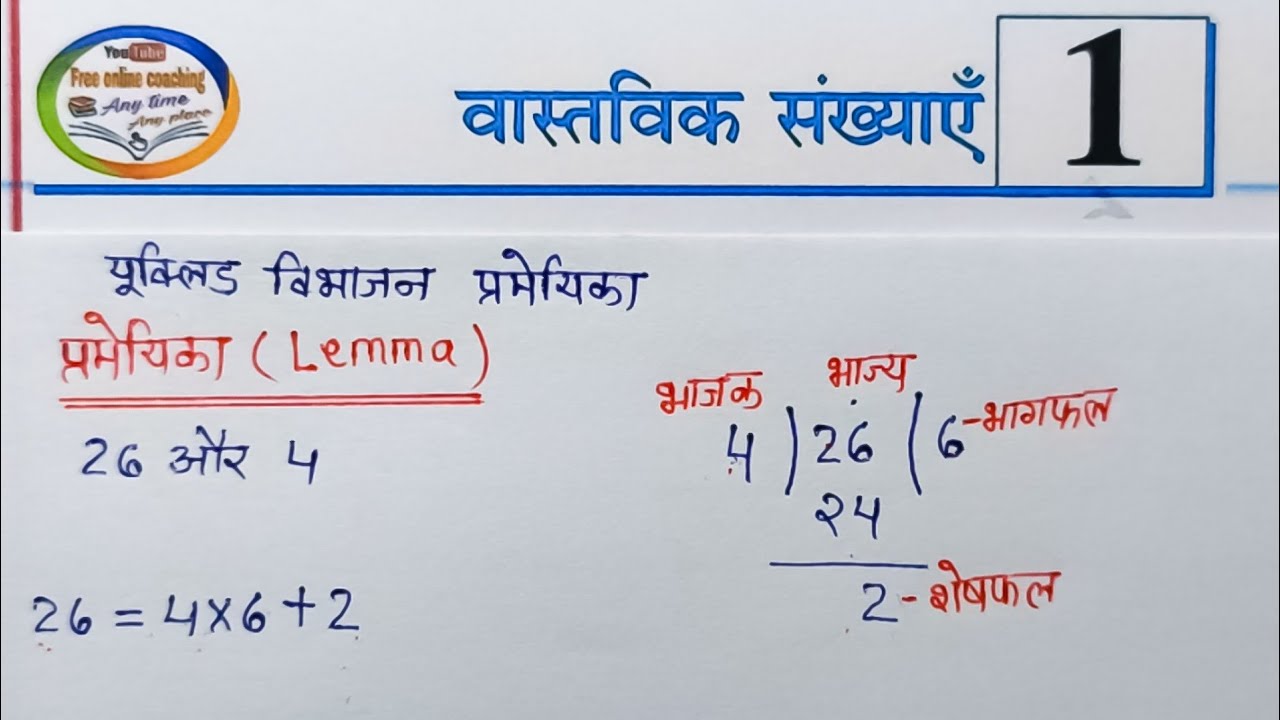 YouTube
Free online coaching
Any time
Any place
वास्तविक संख्याएँ 1
यूक्लिड विभाजन प्रमेयिका
प्रमेयिका (Lemma)
26 और 4
भाजक भाज्य
4 ) 26 ( 6 - भागफल
24
2 - शेषफल
26 = 4 × 6 + 2